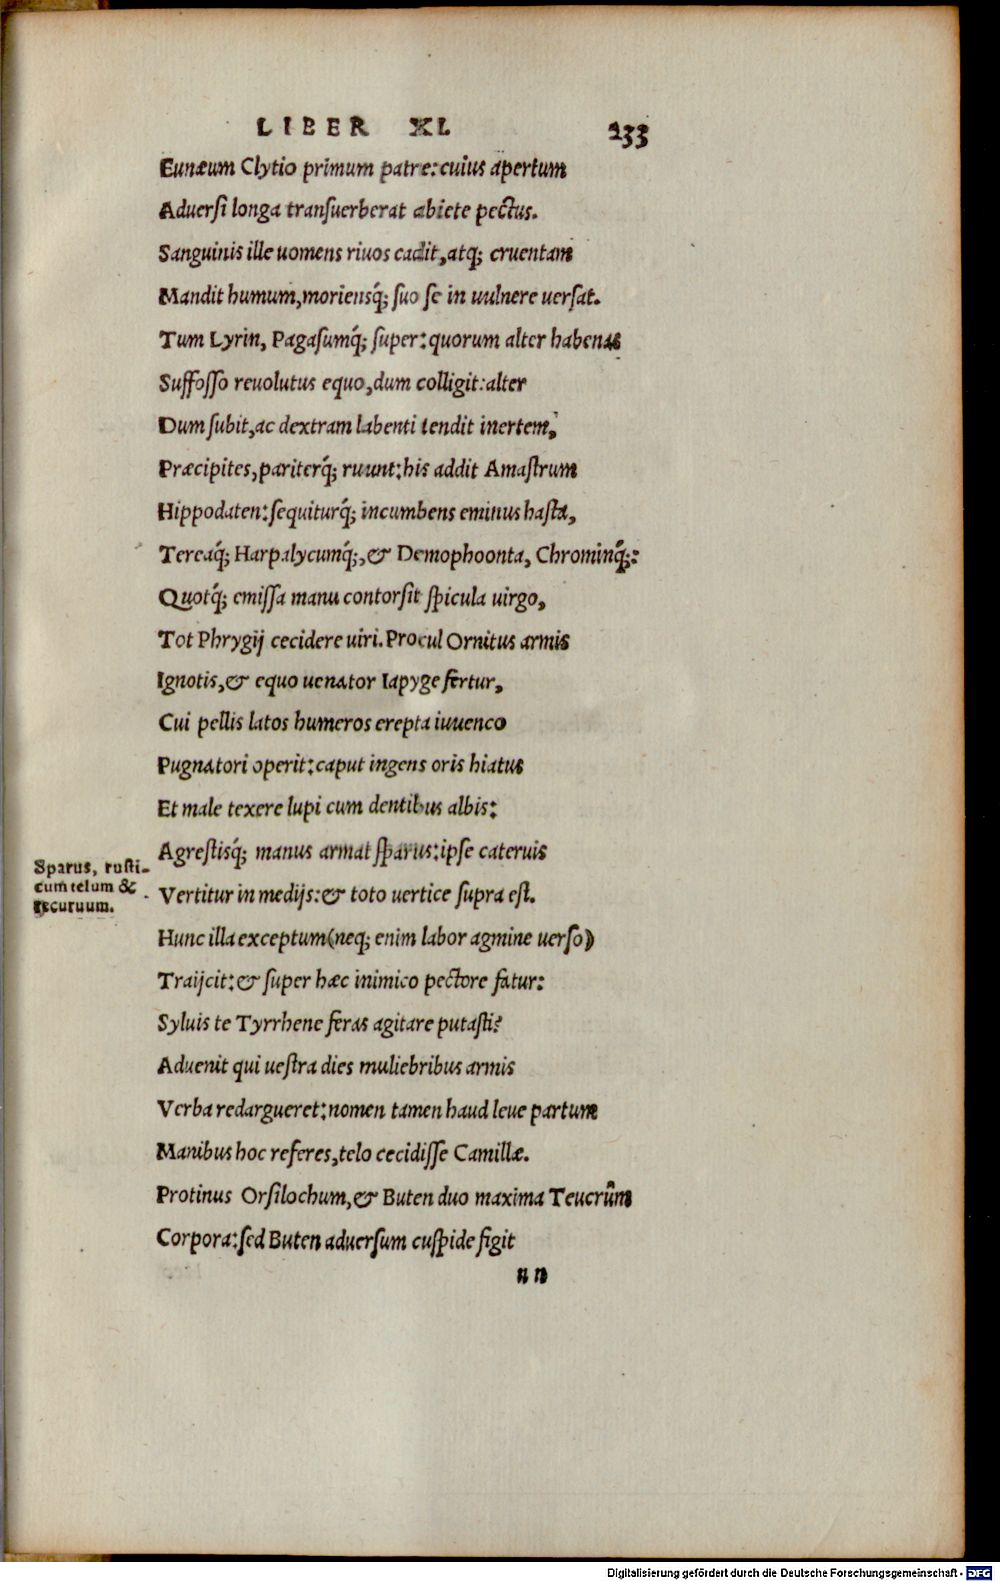 LIBER XI. 233
Eunæum Clytio primum patre: cuius apertum
Aduersi longa transuerberat abiete pectus.
Sanguinis ille uomens riuos cadit, atq; cruentam
Mandit humum, moriensq́; suo se in uulnere uersat.
Tum Lyrin, Pagasumq́; super: quorum alter habenas
Suffosso reuolutus equo, dum colligit: alter
Dum subit, ac dextram labenti tendit inertem,
Præcipites, pariterq́; ruunt: his addit Amastrum
Hippodaten: sequiturq́; incumbens eminus hasta,
Tereaq́; Harpalycumq́;, & Demophoonta, Chrominq́;:
Quotq́; emissa manu contorsit spicula uirgo,
Tot Phrygij cecidere uiri. Procul Ornitus armis
Ignotis, & equo uenator Iapyge fertur,
Cui pellis latos humeros erepta iuuenco
Pugnatori operit: caput ingens oris hiatus
Et male texere lupi cum dentibus albis:
Agrestisq́; manus armat sparus: ipse cateruis
Vertitur in medijs: & toto uertice supra est.
Hunc illa exceptum (neq; enim labor agmine uerso)
Traijcit: & super hæc inimico pectore fatur:
Syluis te Tyrrhene feras agitare putasti?
Aduenit qui uestra dies muliebribus armis
Verba redargueret: nomen tamen haud leue partum
Manibus hoc referes, telo cecidisse Camillæ.
Protinus Orsilochum, & Buten duo maxima Teucrûm
Corpora: sed Buten aduersum cuspide figit
n n
Sparus, rusti-
cum telum &
recuruum.
Digitalisierung gefördert durch die Deutsche Forschungsgemeinschaft - DFG